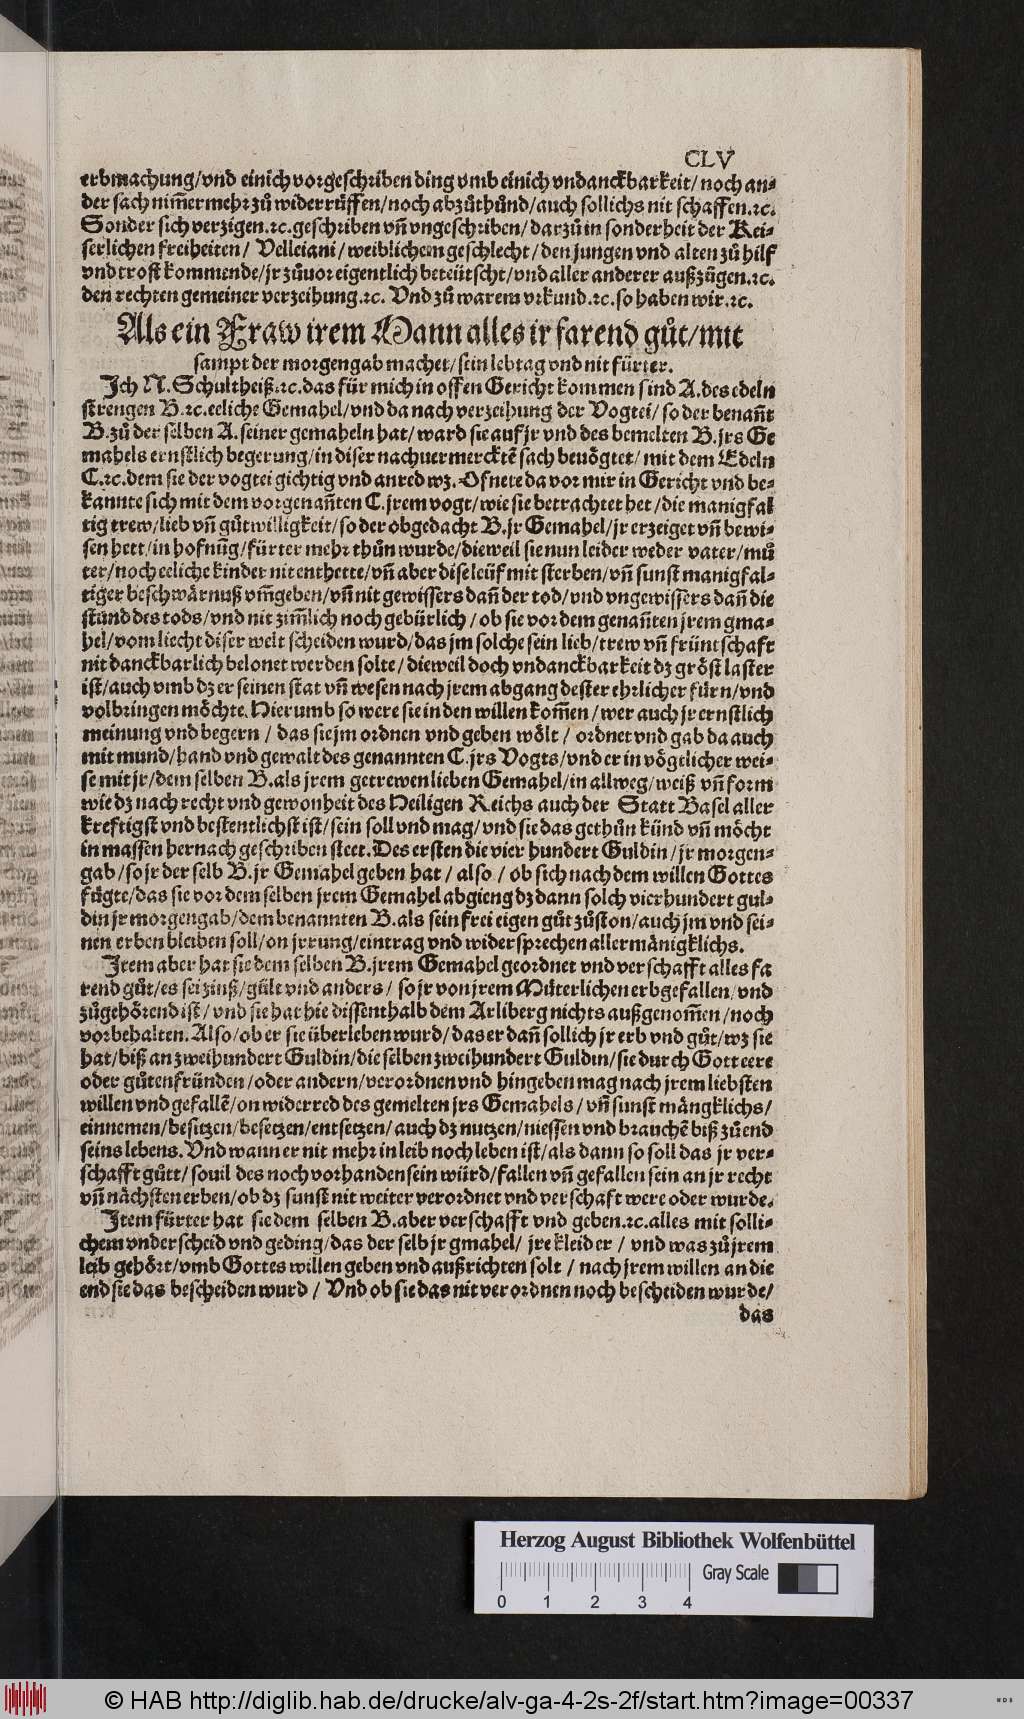 CLV
erbmachung/vnd einich vorgeschriben ding vmb einich vndanckbarkeit/noch an⸗
der sach nim̃er mehr zů widerrůffen/noch abzůthůnd/auch sollichs nit schaffen.ꝛc.
Sonder sich verzigen.ꝛc.geschriben vñ vngeschriben/darzů in sonderheit der Kei⸗
serlichen freiheiten/ Velleiani/weiblichem geschlecht/den jungen vnd alten zů hilf
vnd trost kommende/jr zůuor eigentlich beteütscht/vnd aller anderer außzügen.ꝛc.
den rechten gemeiner verzeihung.ꝛc. Vnd zů warem vrkund.ꝛc.so haben wir.ꝛc.
Als ein Fraw irem Mann alles ir farend gůt/mit
sampt der morgengab machet/sein lebtag vnd nit fürter.
Ich N.Schultheiß.ꝛc.das für mich in offen Gericht kommen sind A.des edeln
strengen B.ꝛc.eeliche Gemahel/vnd da nach verzeihung der Vogtei/so der benañt
B.zů der selben A.seiner gemaheln hat/ward sie auf jr vnd des bemelten B.jrs Ge
mahels ernstlich begerung/in diser nachuermercktẽ sach beuögtet/mit dem Edeln
C.ꝛc.dem sie der vogtei gichtig vnd anred wz.Ofnete da vor mir in Gericht vnd be⸗
kannte sich mit dem vorgenañten C.jrem vogt/wie sie betrachtet het/die manigfal
tig trew/lieb vñ gůtwilligkeit/so der obgedacht B.jr Gemahel/jr erzeiget vñ bewi⸗
sen hett/in hofnũg/fürter mehr thůn wurde/dieweil sie nun leider weder vater/mů
ter/noch eeliche kinder nit enthette/vñ aber dise leüf mit sterben/vñ sunst manigfal⸗
tiger beschwärnuß vm̃geben/vñ nit gewissers dañ der tod/vnd vngewissers dañ die
stund des tods/vnd nit zim̃lich noch gebürlich/ob sie vor dem genañten jrem gma⸗
hel/vom liecht diser welt scheiden wurd/das jm solche sein lieb/trew vñ früntschaft
nit danckbarlich belonet werden solte/dieweil doch vndanckbarkeit dz gröst laster
ist/auch vmb dz er seinen stat vñ wesen nach jrem abgang dester ehrlicher fürn/vnd
volbringen möchte.Hierumb so were sie in den willen kom̃en/wer auch jr ernstlich
meinung vnd begern / das sie jm ordnen vnd geben wölt / ordnet vnd gab da auch
mit mund/hand vnd gewalt des genannten C.jrs Vogts/vnd er in vögtlicher wei⸗
se mit jr/dem selben B.als jrem getrewen lieben Gemahel/in allweg/weiß vñ form
wie dz nach recht vnd gewonheit des Heiligen Reichs auch der Statt Basel aller
kreftigst vnd bestentlichst ist/sein soll vnd mag/vnd sie das gethůn künd vñ möcht
in massen hernach geschriben steet.Des ersten die vier hundert Guldin/jr morgen⸗
gab/so jr der selb B.jr Gemahel geben hat / also / ob sich nach dem willen Gottes
fůgte/das sie vor dem selben jrem Gemahel abgieng dz dann solch vierhundert gul⸗
din jr morgengab/dem benannten B.als sein frei eigen gůt zůston/auch jm vnd sei⸗
nen erben bleiben soll/on jrrung/eintrag vnd widersprechen allermänigklichs.
Item aber hat sie dem selben B.jrem Gemahel geordnet vnd verschafft alles fa
rend gůt/es sei zinß/gült vnd anders / so jr von jrem Můterlichen erb gefallen/vnd
zůgehörend ist/vnd sie hat hie dissenthalb dem Arliberg nichts außgenom̃en/noch
vorbehalten.Also/ob er sie überleben wurd/das er dañ sollich jr erb vnd gůt/wz sie
hat/biß an zweihundert Guldin/die selben zweihundert Guldin/sie durch Gott eere
oder gůten fründen/oder andern/verordnen vnd hingeben mag nach jrem liebsten
willen vnd gefallẽ/on widerred des gemelten jrs Gemahels/vñ sunst mängklichs/
einnemen/besitzen/besetzen/entsetzen/auch dz nutzen/niessen vnd brauchẽ biß zů end
seins lebens.Vnd wann er nit mehr in leib noch leben ist/als dann so soll das jr ver⸗
schafft gůtt/souil des noch vorhanden sein würd/fallen vñ gefallen sein an jr recht
vñ nächsten erben/ob dz sunst nit weiter verordnet vnd verschaft were oder wurde.
Item fürter hat sie dem selben B.aber verschafft vnd geben.ꝛc.alles mit solli⸗
chem vnderscheid vnd geding/das der selb jr gmahel/ jre kleider / vnd was zů jrem
leib gehört/vmb Gottes willen geben vnd außrichten solt / nach jrem willen an die
end sie das bescheiden wurd / Vnd ob sie das nit verordnen noch bescheiden wurde/
das
Herzog August Bibliothek Wolfenbüttel
Gray Scale
0 1 2 3 4
© HAB http://diglib.hab.de/drucke/alv-ga-4-2s-2f/start.htm?image=00337